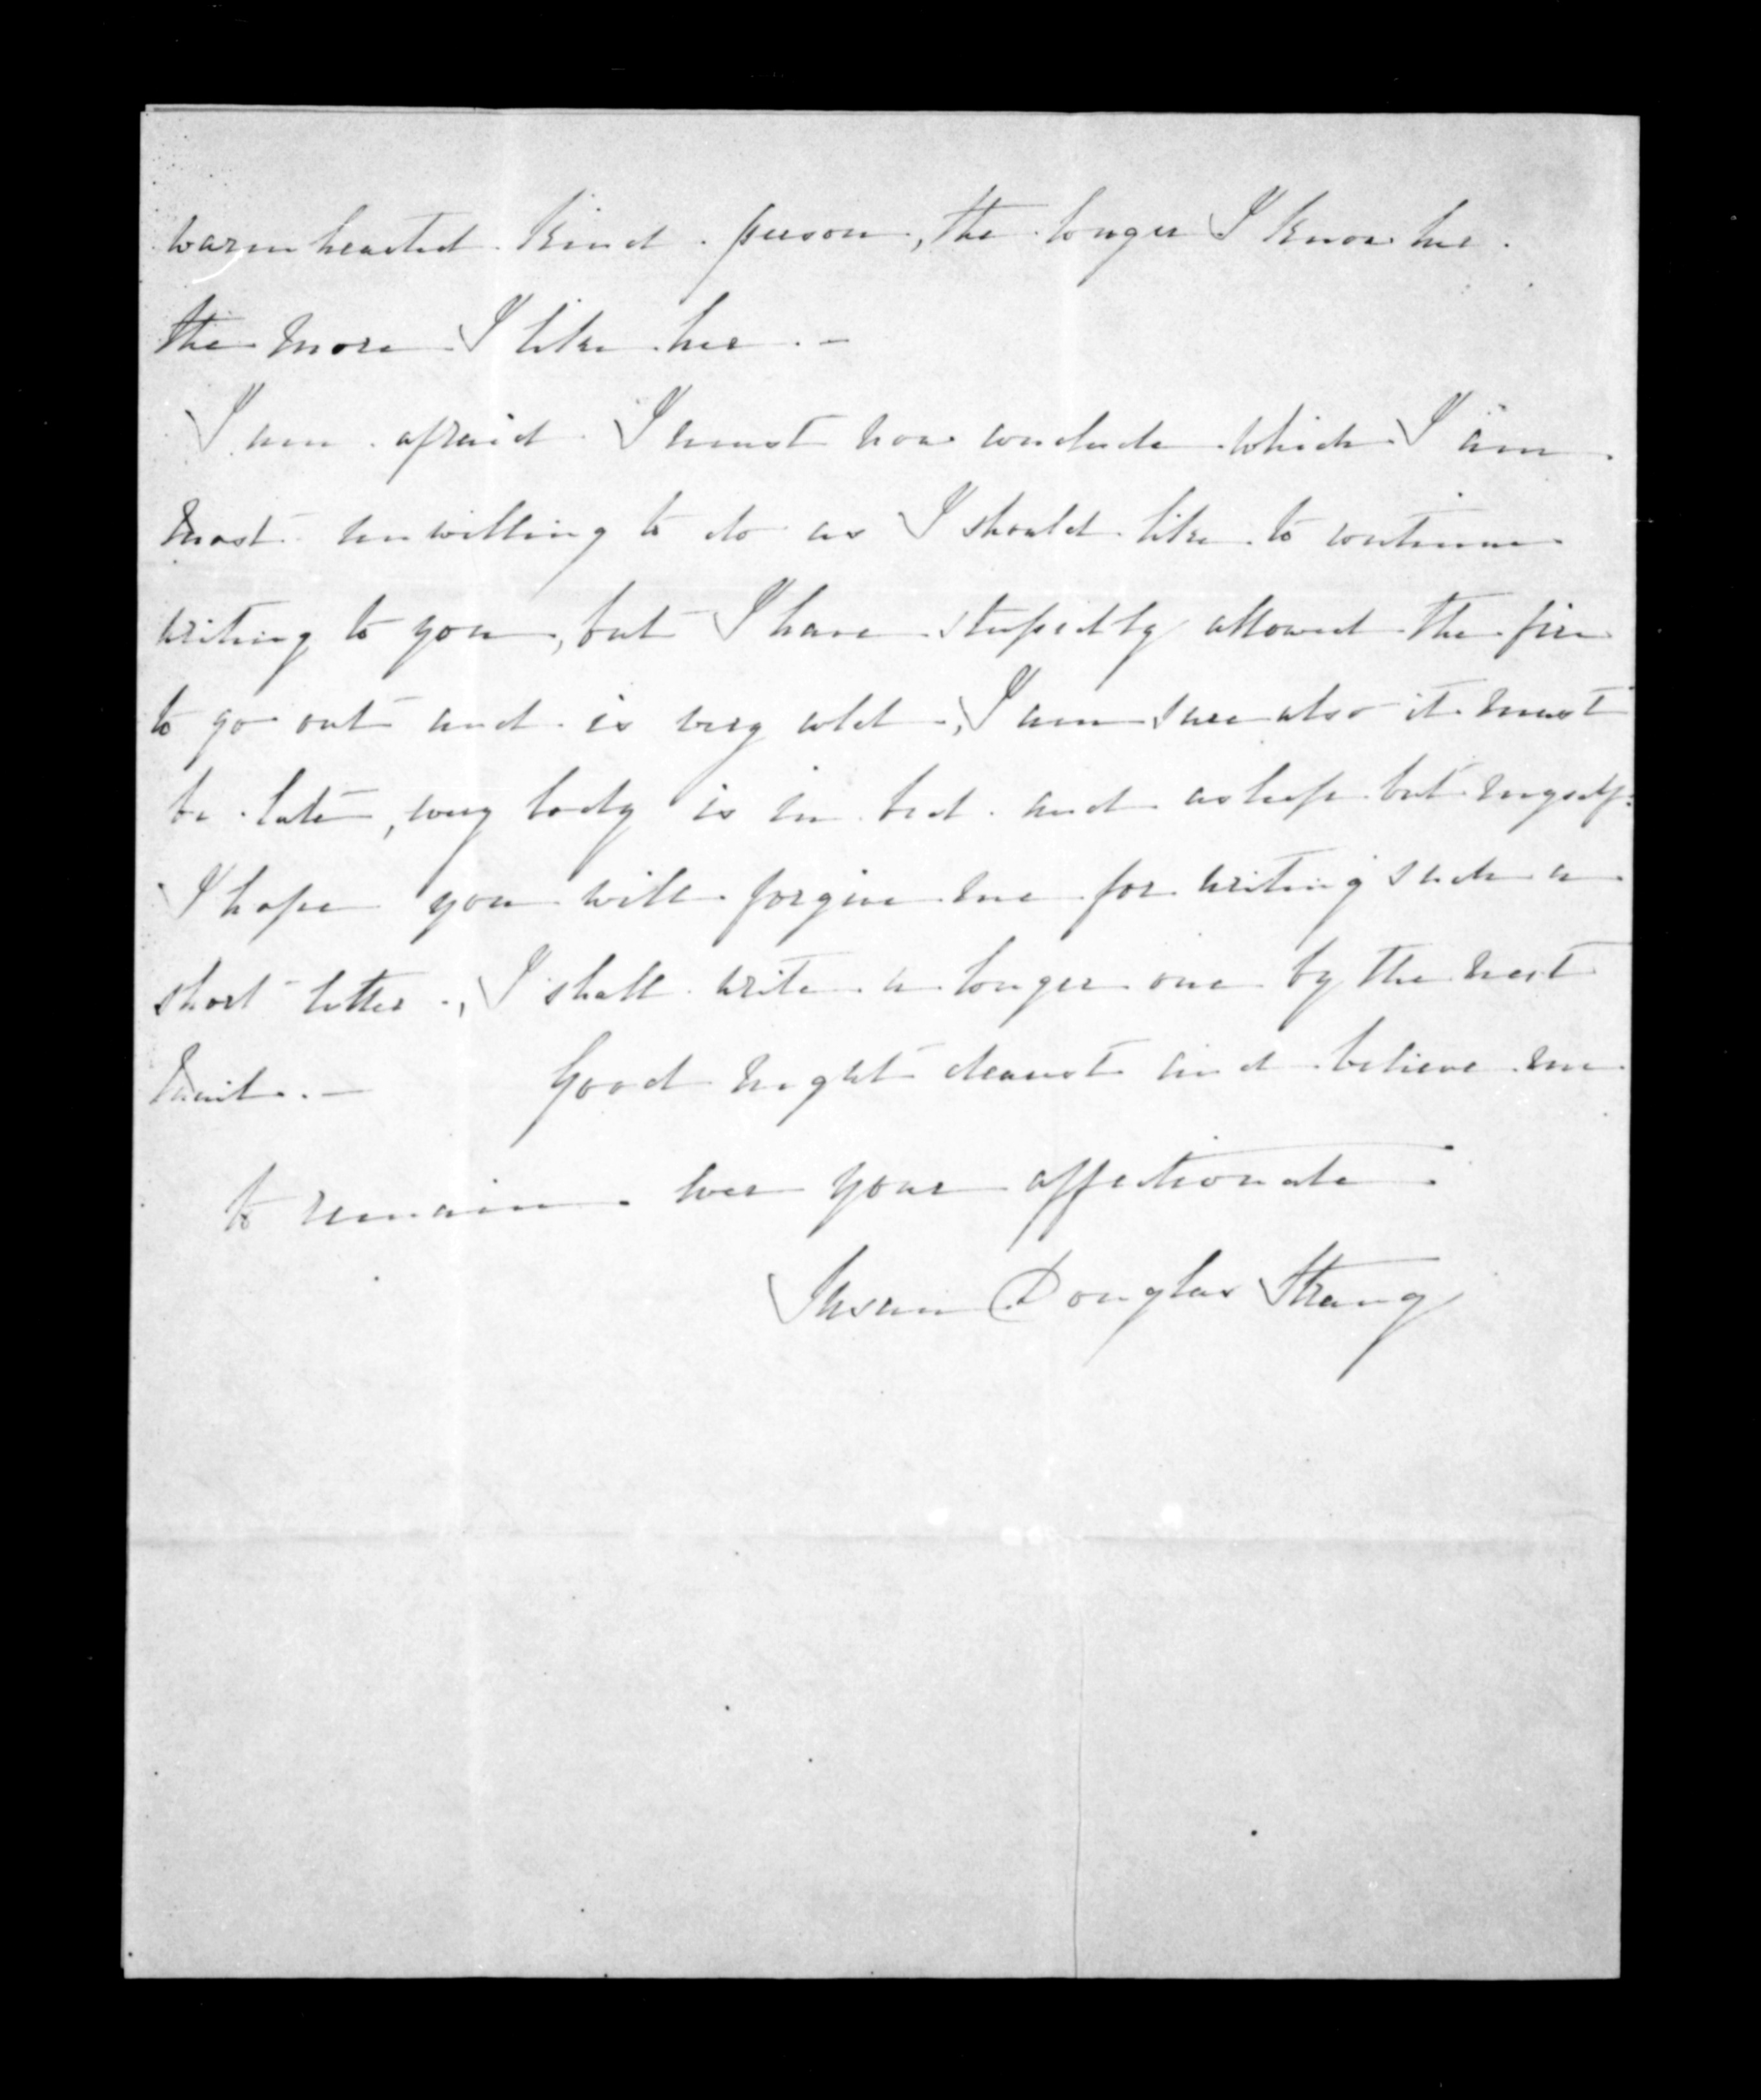 warm hearted kind person, the longer I know her
the more I like her. -
I am afraid I must now conclude which I am
most unwilling to do as I should like to continue
writing to you, but I have stupidly allowed the fire
to go out and is very cold, I am sure also it must
be late, every body is in bed and asleep but myself.
I hope you will forgive me for writing such a
short letter, I shall write a longer one by the next
Mail. - Good night dearest and believe me
to remain ever your affectionate
Susan Douglas Strang